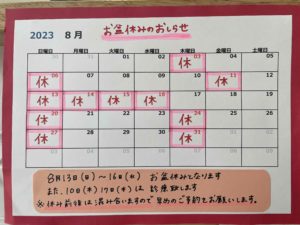 2023 8月 お盆休みのおしらせ
日曜日 月曜日 火曜日 水曜日 木曜日 金曜日 土曜日
30 31 01 02 03 04 05
休
06 07 08 09 10 11 12
休 休
13 14 15 16 17 18 19
休 休 休 休
20 21 22 23 24 25 26
休 休
27 28 29 30 31 01 02
休 休
03 04 05 06 07 08 09
8月13日(日)〜16日(水) お盆休みとなります
また、10日(木)17日(木)は 診療致します
※休み前後は混み合いますので早めのご予約をお願いします。